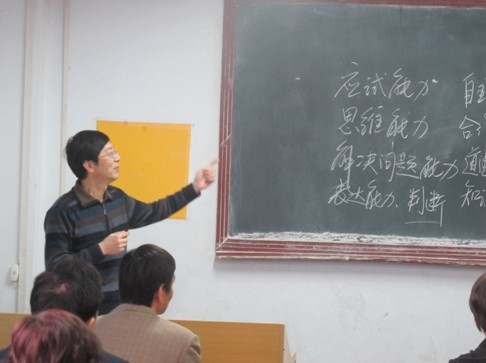 应试能力 自主
思维能力 合
解决问题能力 道
表达能力、判断 知识